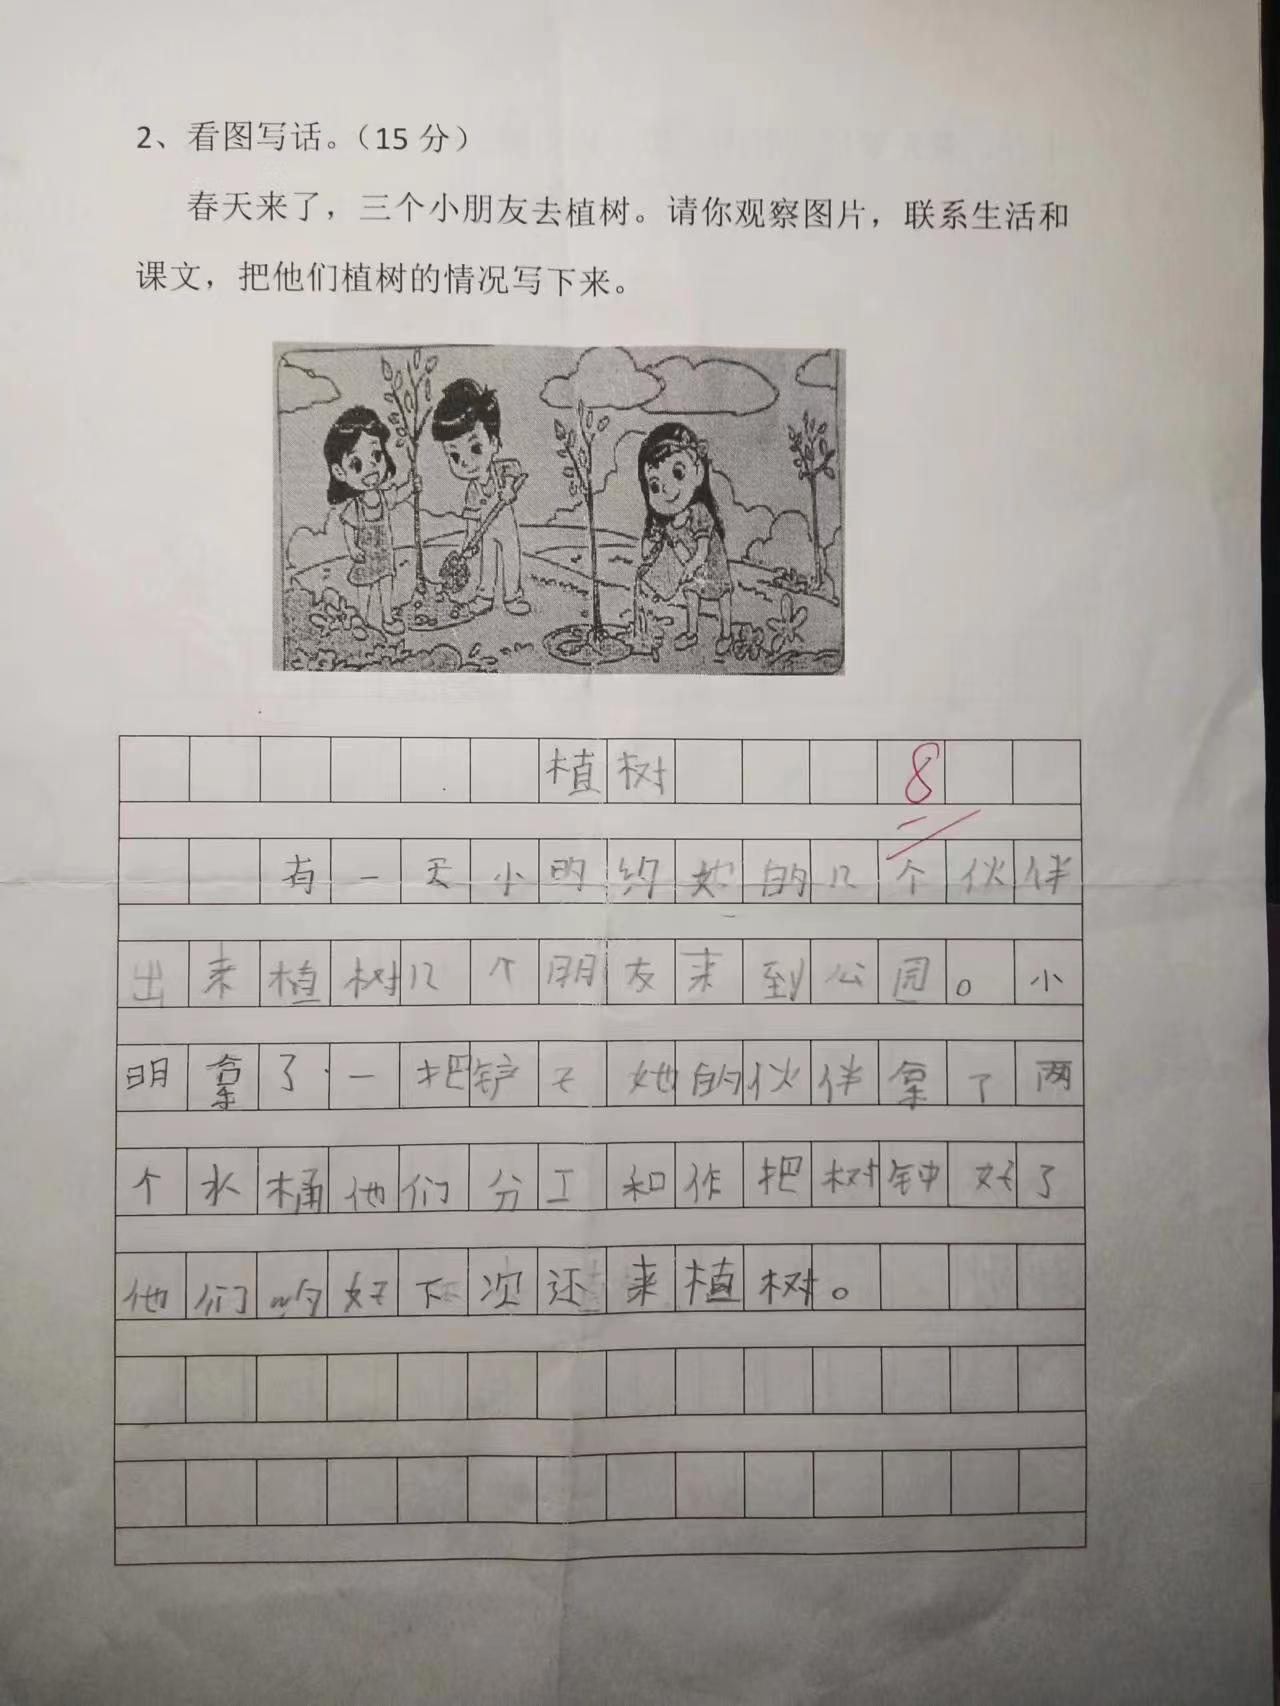 2、看图写话。（15分）
春天来了，三个小朋友去植树。请你观察图片，联系生活和
课文，把他们植树的情况写下来。
植树
8
有一天小明约她的几个伙伴
出来植树几个朋友来到公园。小
明拿了一把铲子她的伙伴拿了两
个水桶他们分工和作把树钟好了
他们约好下次还来植树。